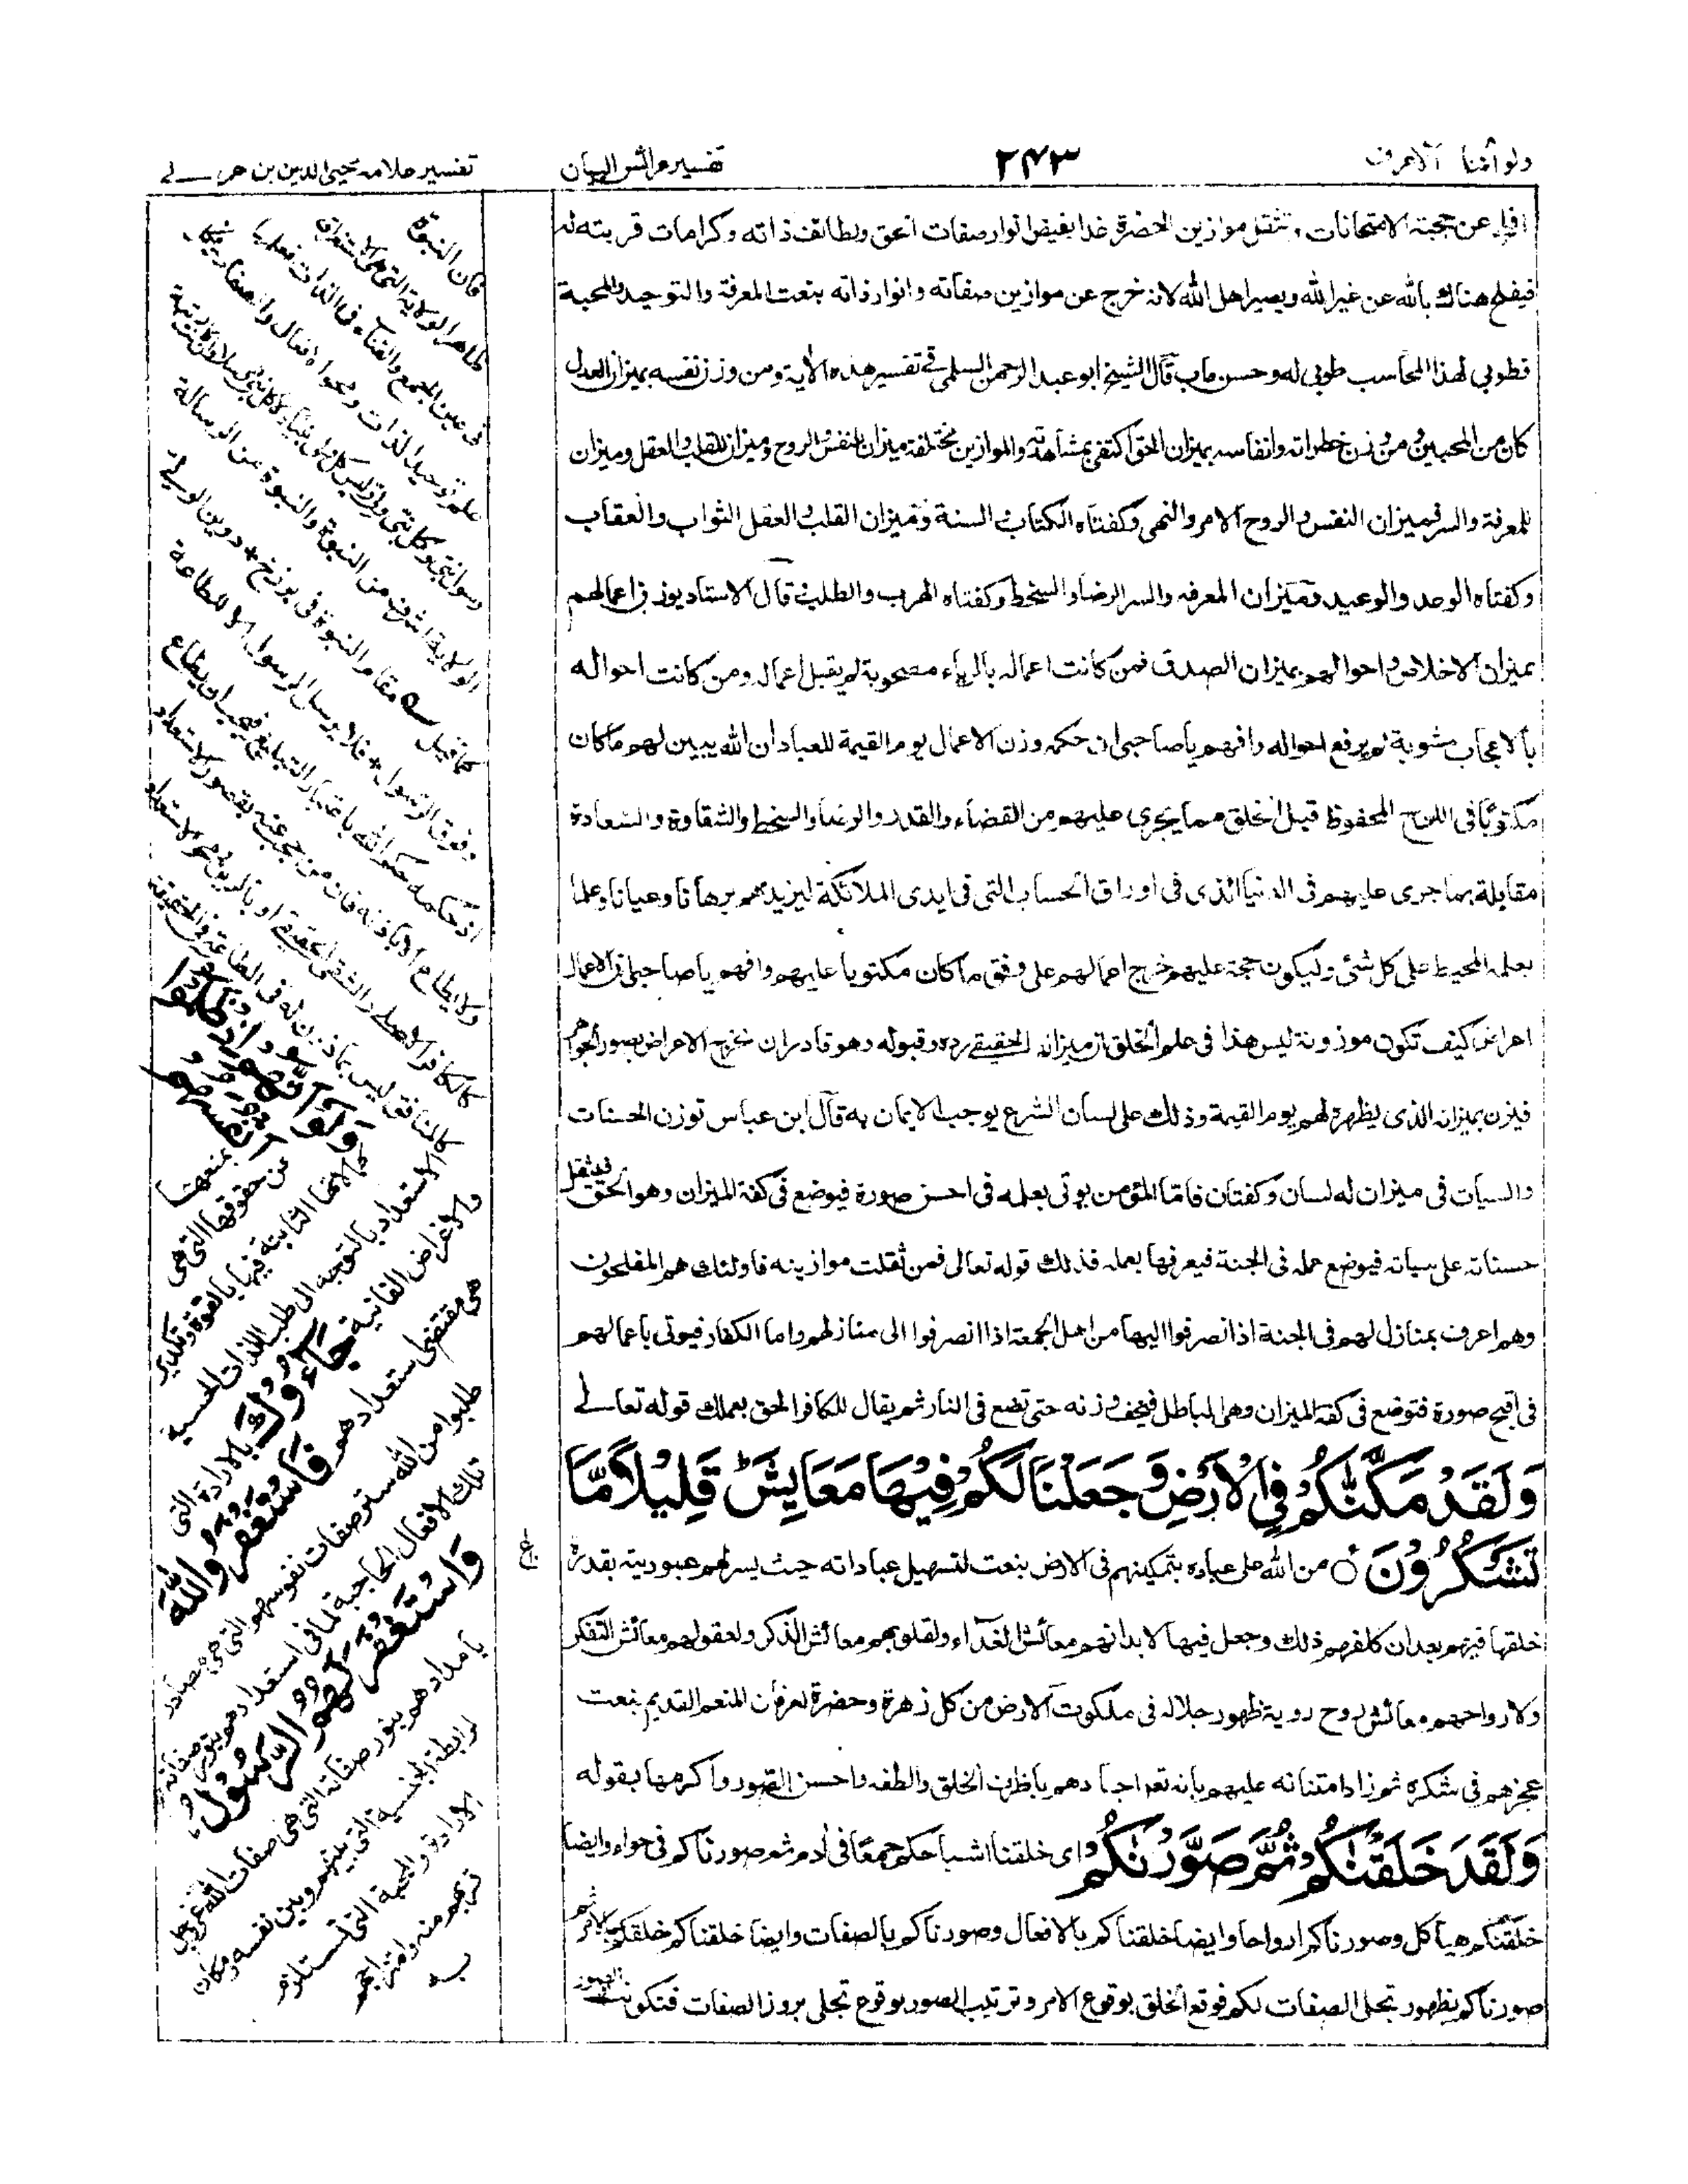 ولو أننا ٨ الاعراف
٢٤٣
تفسير عرائس البيان
تفسير علامه محيى الدين بن عربى
عن حجبة الامتحانات تثقل موازين الحضرة غدا بفيض انوار صفات الحق ولطائف ذاته وكرامات قربته له
فيفلح هناك بالله عن غير الله ويصير اهل الله لانه خرج عن موازين صفاته وانوار ذاته بنعت المعرفة والتوحيد والمحبة
فطوبى لهذا المحاسب طوبى له وحسن ماب قال الشيخ ابو عبد الرحمن السلمى فى تفسير هذه الأية ومن وزن نفسه بميزان العدل
كان من المحبين ومن وزن خطراته وانفاسه بميزان الحق اكتفى بمشاهدته والموازين مختلفة ميزان للنفس والروح وميزان للقلب والعقل وميزان
للمعرفة والسر فميزان النفس والروح الامر والنهى وكفتاه الكتاب والسنة وميزان القلب والعقل الثواب والعقاب
وكفتاه الوعد والوعيد وميزان المعرفه والسر الرضا والسخط وكفتاه الهرب والطلب قال الاستاد يوزن اعمالهم
بميزان الاخلاص واحوالهم بميزان الصدق فمن كانت اعماله بالرياء مصحوبة لم يقبل اعماله ومن كانت احواله
بالاعجاب مشوبة لم يرفع احواله وافهم ياصاحبى ان حكمه وزن الاعمال يوم القيمة للعباد ان الله يبين لهم ما كان
مكتوبا فى اللوح المحفوظ قبل الخلق مما يجرى عليهم من القضاء والقدر والرضا والسخط والشقاوة والسعادة
مقابلة بما جرى عليهم فى الدنيا الذى فى اوراق الحساب التى فى ايدى الملائكة ليزيدهم برهانا وعيانا وعلما
بعلمه المحيط على كل شئ وليكون حجة عليهم خرج اعمالهم على وفق ما كان مكتوبا عليهم وافهم ياصاحبى ان الاعمال
اعراض كيف تكون موزونة ليس هذا فى علم الخلق ان ميزانه الحقيقى رده وقبوله وهو قادر ان يخرج الاعراض بصور الجواهر
فيزن بميزانه الذى يظهره لهم يوم القيمة وذلك على لسان الشرع يوجب الايمان به قال ابن عباس توزن الحسنات
والسيأت فى ميزان له لسان وكفتان فاما المؤمن يوتى بعمله فى احسن صورة فيوضع فى كفة الميزان وهو الحق فيثقل
حسناته على سياته فيوضع عمله فى الجنة فيعرفها بعمله فذلك قوله تعالى فمن ثقلت موازينه فاولئك هم المفلحون
وهم اعرف بمنازلهم فى الجنة اذا انصرفوا اليها من اهل الجمعة اذا انصرفوا الى منازلهم واما الكفار فيوتى باعمالهم
فى اقبح صورة فتوضع فى كفة الميزان وهى الباطل فيخف وزنه حتى تضع فى النار ثم يقال للكافر الحق بعملك قوله تعالى
وَلَقَدْ مَكَّنّٰكُمْ فِي الْاَرْضِ وَجَعَلْنَا لَكُمْ فِيْهَا مَعَايِشَ ؕ قَلِيْلًا مَّا
تَشْكُرُوْنَ ۝ من الله على عباده بتمكينهم فى الارض بنعت لتسهيل عباداته حيث يسر لهم عبوديته بقدرة
خلقها فيهم بعد ان كلفهم ذلك وجعل فيها لابدانهم معائش الغذاء ولقلوبهم معائش الذكر ولعقولهم معائش التفكر
ولارواحهم معائش روح روية ظهور جلاله فى ملكوت الارض من كل زهرة وحضرة لعرفان المنعم القديم بنعت
عجزهم فى شكره ثم زاد امتنانه عليهم بانه تعم اجادهم باظرف الخلق والطفه واحسن الصور واكرمها بقوله
وَلَقَدْ خَلَقْنٰكُمْ ثُمَّ صَوَّرْنٰكُمْ اى خلقنا اشباحكم جمعا فى أدم ثم صورناكم فى حواء وايضا
خلقنكم هياكل وصورناكم ارواحا وايضا خلقناكم بالافعال وصورناكم بالصفات وايضا خلقناكم خلقكم بالامر ثم
صورناكم بظهور تجلى الصفات لكم فوقع الخلق بوقوع الامر وترتيب الصور بوقوع تجلى بروز الصفات فتكونت الصور
ع
فان النبوة
ظاهر الولاية التى هى الاستغراق
فى عين الجمع والفناء فى الذات فعلمها
علم توحيد الذات ومحو الافعال والصفات فكل
رسول نبى وكل نبى ولى وليس كل ولى نبيا ولا كل نبى رسولا وان كان رتبة
الولاية اشرف من النبوة والنبوة من الرسالة
كما قيل ؎ مقام النبوة فى برزخ + دوين الولى
وفوق الرسول + فلا يرسل الرسول الا للطاعة
اذ حكمه حكم الله باعتبار التبليغ فيجب ان يطاع
ولا يطاع الا باذنه فان من حجب عنه بقصور الاستعداد
كالكافر الاصلى والشقى الحقيقى او بالرين ومحو الاستعداد
كالمنافق ليس بماذون له فى الطاعة فى الحقيقة
وَلَوْ اَنَّهُمْ اِذْ ظَّلَمُوْا
اَنْفُسَهُمْ بمنعها
عن حقوقها التى هى
الثابتة فيها بالقوة وتكدير
الاستعداد بالتوجه الى طلب اللذات الحسية
والاغراض الفانية جَآءُوْكَ بالارادة التى
هى مقتضى استعدادهم فَاسْتَغْفَرُوا اللّٰهَ
طلبوا من الله ستر صفات نفوسهم التى هى مصادر
تلك الافعال الحاجبة لما فى استعدادهم بنور صفاته
وَاسْتَغْفَرَ لَهُمُ الرَّسُوْلُ
بامدادهم بنور صفاته التى هى صفات الله عز وجل
لرابطة الجنسية التى بينهم وبين نفسه ومكان
الارادة والمحبة التى تستلزم
قربهم منه وامتزاجهم
به